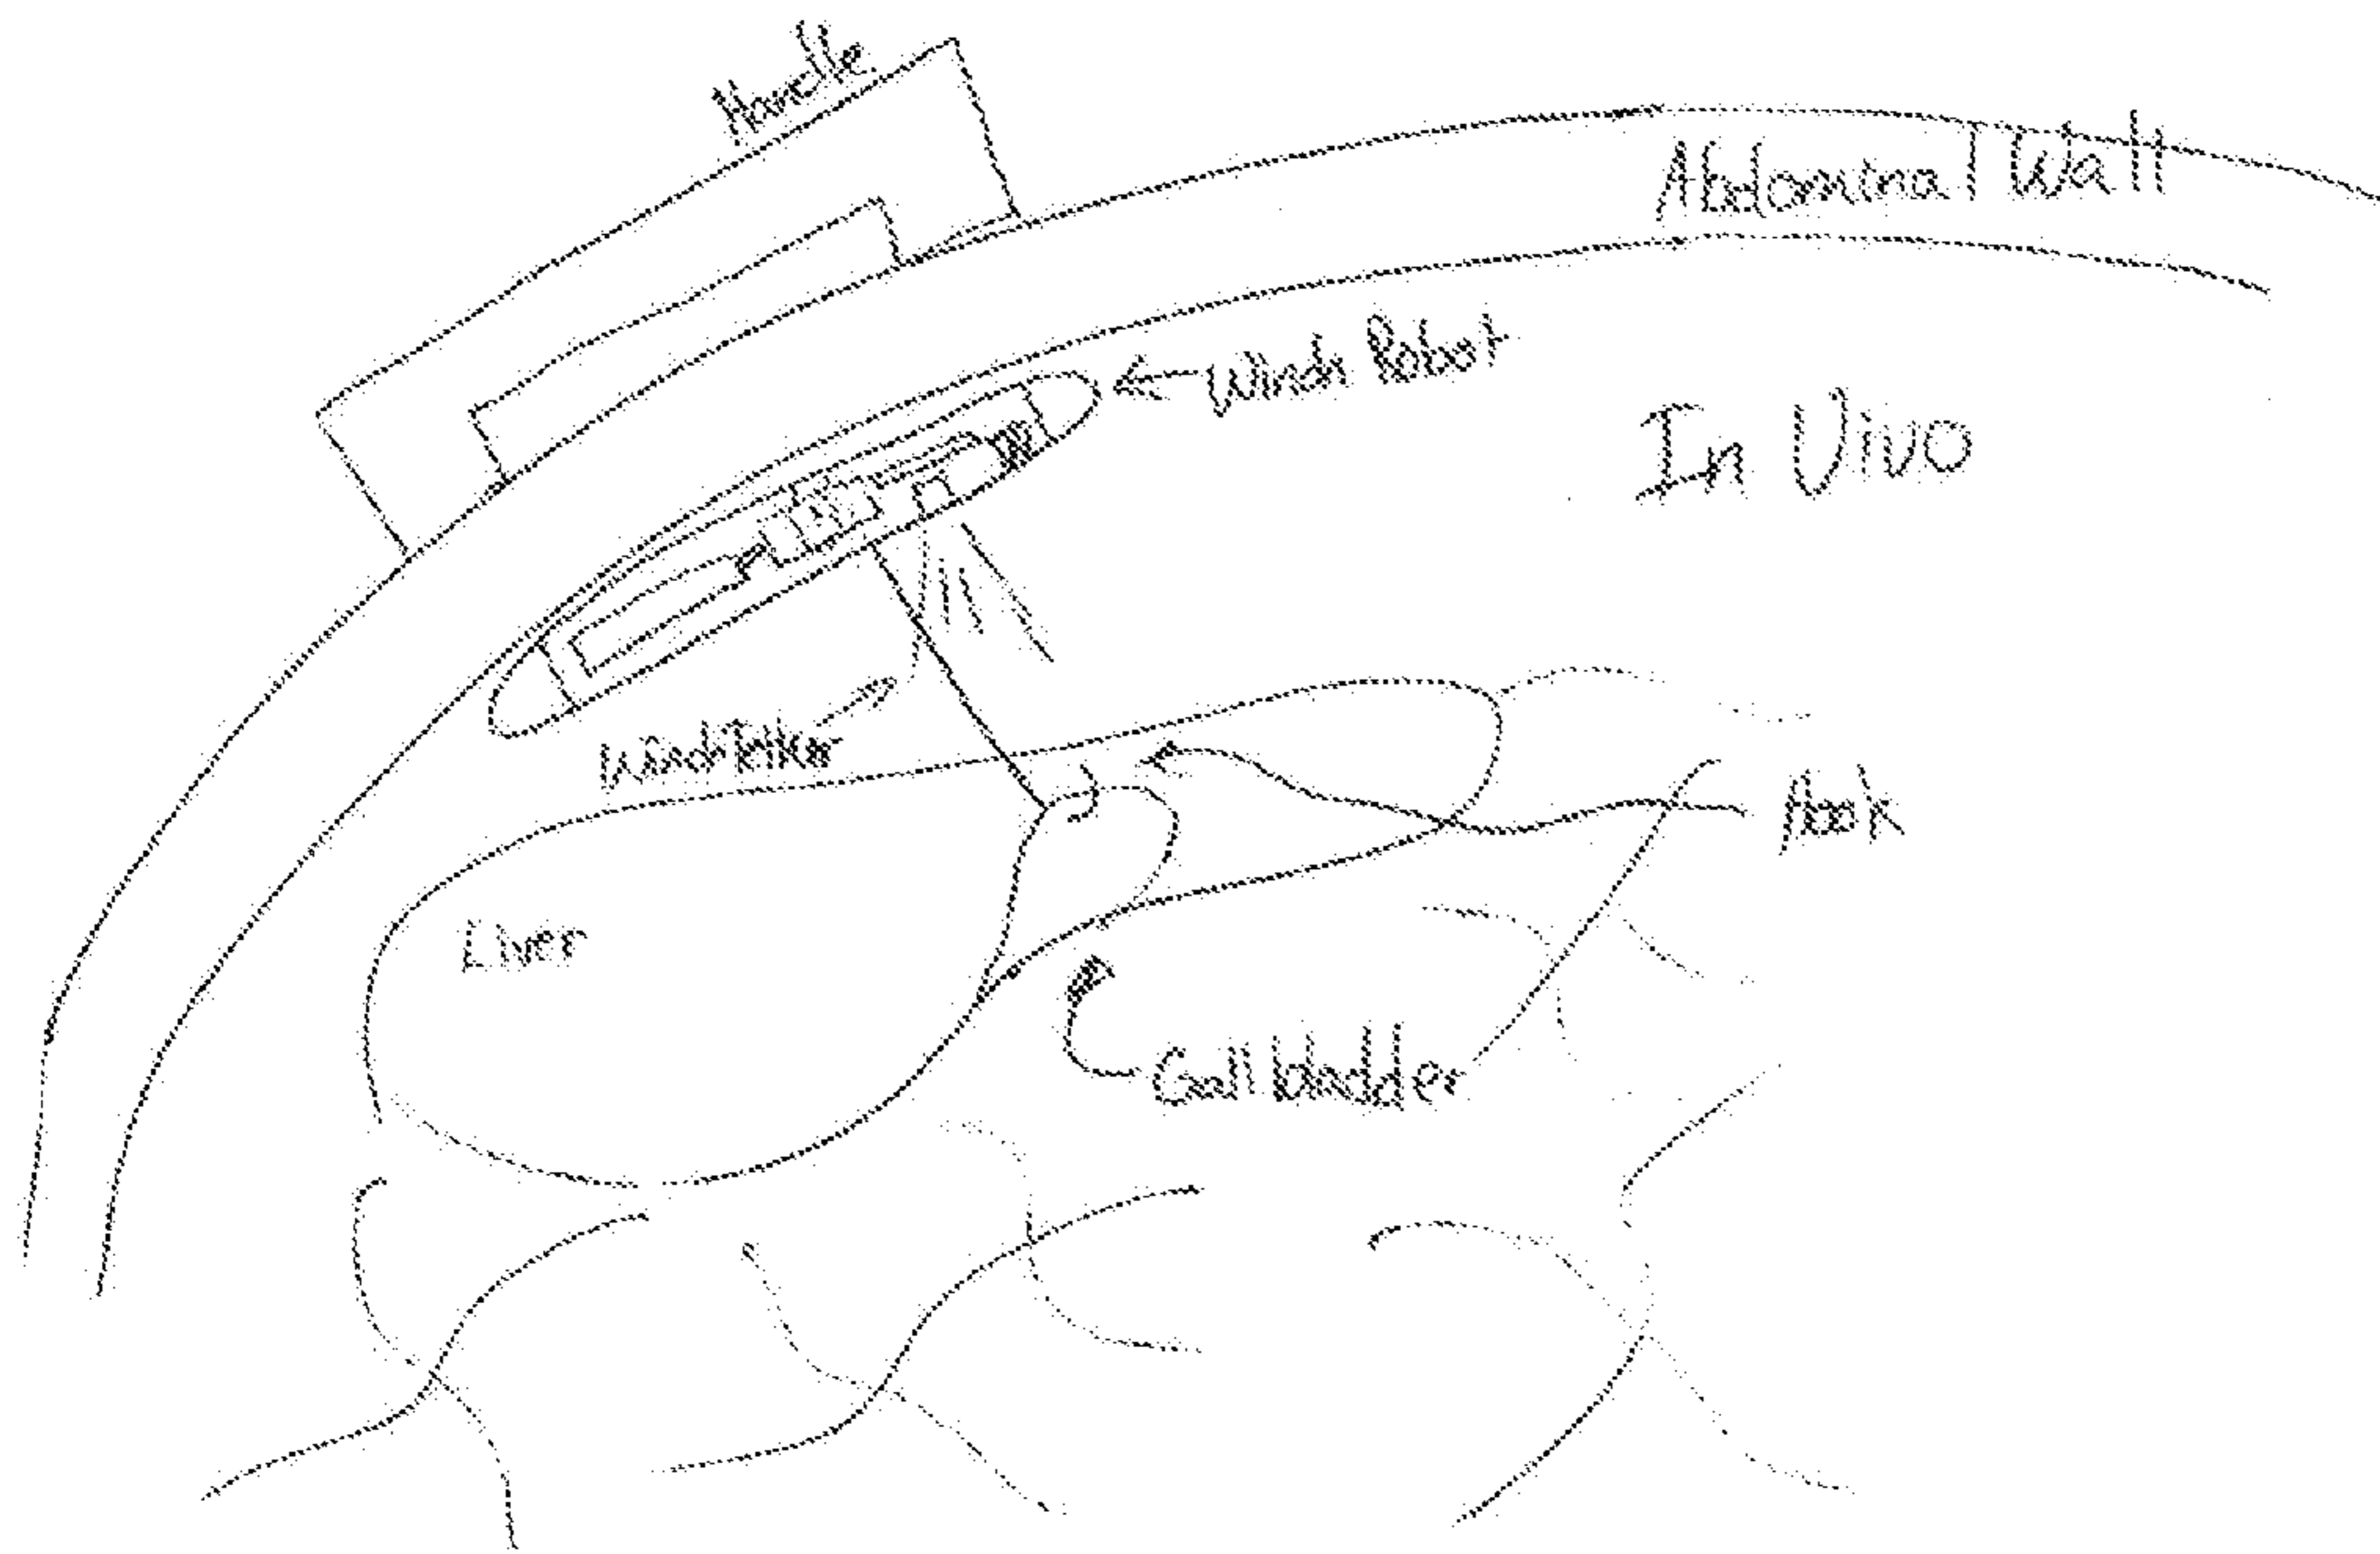 Handle
Abdominal Wall
Winch Robot
In Vivo
Winch Tether
Hook
Liver
Gall bladder